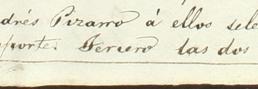 drés Pizarro á ellos sele
porte. Tercero las dos